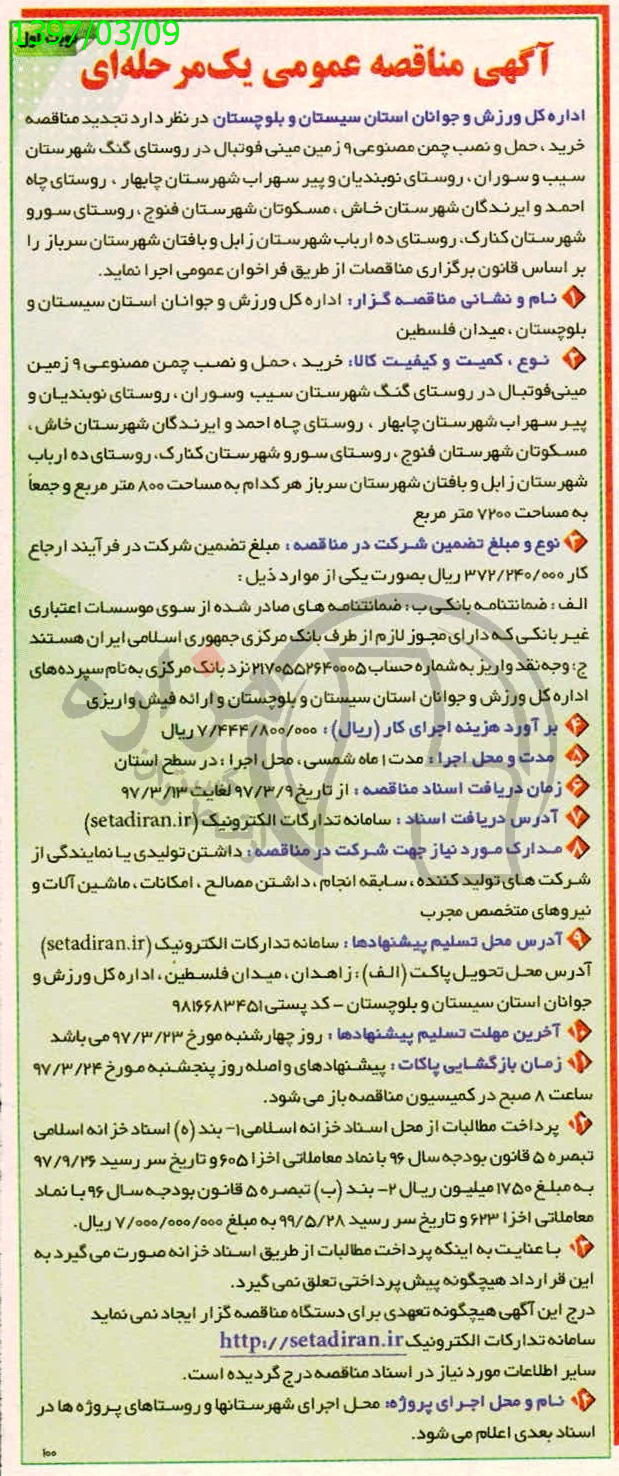 1397/03/09
نوبت اول
آگهی مناقصه عمومی یک مرحله‌ای
اداره کل ورزش و جوانان استان سیستان و بلوچستان در نظر دارد تجدید مناقصه
خرید ، حمل و نصب چمن مصنوعی ۹ زمین مینی فوتبال در روستای گنگ شهرستان
سیب و سوران ، روستای نوبندیان و پیر سهراب شهرستان چابهار ، روستای چاه
احمد و ایرندگان شهرستان خاش ، مسکوتان شهرستان فنوج ، روستای سورو
شهرستان کنارک، روستای ده ارباب شهرستان زابل و بافتان شهرستان سرباز را
بر اساس قانون برگزاری مناقصات از طریق فراخوان عمومی اجرا نماید.
۱ نام و نشانی مناقصه گزار: اداره کل ورزش و جوانان استان سیستان و
بلوچستان ، میدان فلسطین
۲ نوع ، کمیت و کیفیت کالا: خرید ، حمل و نصب چمن مصنوعی ۹ زمین
مینی‌فوتبال در روستای گنگ شهرستان سیب وسوران ، روستای نوبندیان و
پیر سهراب شهرستان چابهار ، روستای چاه احمد و ایرندگان شهرستان خاش ،
مسکوتان شهرستان فنوج ، روستای سورو شهرستان کنارک، روستای ده ارباب
شهرستان زابل و بافتان شهرستان سرباز هر کدام به مساحت ۸۰۰ متر مربع و جمعاً
به مساحت ۷۲۰۰ متر مربع
۳ نوع و مبلغ تضمین شرکت در مناقصه : مبلغ تضمین شرکت در فرآیند ارجاع
کار ۳۷۲/۲۴۰/۰۰۰ ریال بصورت یکی از موارد ذیل :
الف : ضمانتنامه بانکی ب : ضمانتنامه های صادر شده از سوی موسسات اعتباری
غیر بانکی که دارای مجوز لازم از طرف بانک مرکزی جمهوری اسلامی ایران هستند
ج: وجه نقد واریز به شماره حساب ۲۱۷۰۵۵۲۶۴۰۰۰۵ نزد بانک مرکزی به نام سپرده های
اداره کل ورزش و جوانان استان سیستان و بلوچستان و ارائه فیش واریزی
۴ بر آورد هزینه اجرای کار (ریال) : ۷/۴۴۴/۸۰۰/۰۰۰ ریال
۵ مدت و محل اجرا : مدت ۱ ماه شمسی ، محل اجرا : در سطح استان
۶ زمان دریافت اسناد مناقصه : از تاریخ ۹۷/۳/۹ لغایت ۹۷/۳/۱۳
۷ آدرس دریافت اسناد : سامانه تدارکات الکترونیک (setadiran.ir)
۸ مدارک مورد نیاز جهت شرکت در مناقصه : داشتن تولیدی یا نمایندگی از
شرکت های تولید کننده ، سابقه انجام ، داشتن مصالح ، امکانات ، ماشین آلات و
نیروهای متخصص مجرب
۹ آدرس محل تسلیم پیشنهادها : سامانه تدارکات الکترونیک (setadiran.ir)
آدرس محل تحویل پاکت (الف) : زاهدان ، میدان فلسطین ، اداره کل ورزش و
جوانان استان سیستان و بلوچستان – کد پستی ۹۸۱۶۶۸۳۴۵۱
۱۰ آخرین مهلت تسلیم پیشنهادها : روز چهارشنبه مورخ ۹۷/۳/۲۳ می باشد
۱۱ زمان بازگشایی پاکات : پیشنهادهای واصله روز پنجشنبه مورخ ۹۷/۳/۲۴
ساعت ۸ صبح در کمیسیون مناقصه باز می شود.
۱۲ پرداخت مطالبات از محل اسناد خزانه اسلامی ۱- بند (ه) اسناد خزانه اسلامی
تبصره ۵ قانون بودجه سال ۹۶ با نماد معاملاتی اخزا ۶۰۵ و تاریخ سر رسید ۹۷/۹/۲۶
به مبلغ ۱۷۵۰ میلیون ریال ۲- بند (ب) تبصره ۵ قانون بودجه سال ۹۶ با نماد
معاملاتی اخزا ۶۲۳ و تاریخ سر رسید ۹۹/۵/۲۸ به مبلغ ۷/۰۰۰/۰۰۰/۰۰۰ ریال.
۱۳ با عنایت به اینکه پرداخت مطالبات از طریق اسناد خزانه صورت می گیرد به
این قرارداد هیچگونه پیش پرداختی تعلق نمی گیرد.
درج این آگهی هیچگونه تعهدی برای دستگاه مناقصه گزار ایجاد نمی نماید
سامانه تدارکات الکترونیک http://setadiran.ir
سایر اطلاعات مورد نیاز در اسناد مناقصه درج گردیده است.
۱۴ نام و محل اجرای پروژه: محل اجرای شهرستانها و روستاهای پروژه ها در
اسناد بعدی اعلام می شود.
۱۰۰